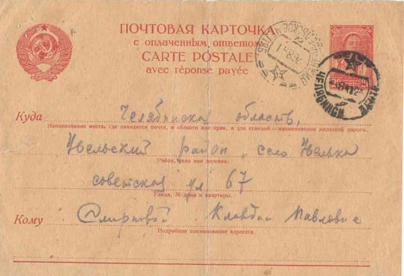 ПОЧТОВАЯ КАРТОЧКА
с оплаченным ответом
CARTE POSTALE
avec réponse payée
Куда Челябинска область,
Наименование места, где находится почта, и области или края, а для станций—наименование железной дороги.
Увельский район, село Увелька
Район, село или деревня.
советская ул 67
Улица, № дома и квартиры.
Кому Смирновой Клавдии Павловне
Подробное наименование адресата.
ЧЕЛЯБИНСК